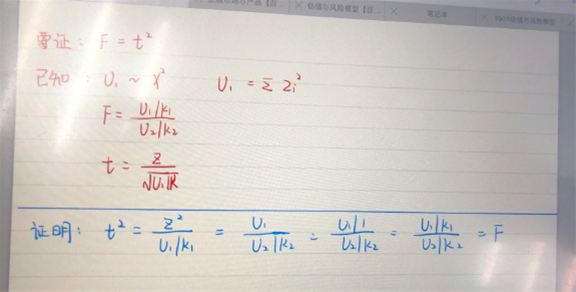 估值与风险模型【百
笔记本
要证: F = t²
已知: U₁ ~ χ² U₁ = Σ Zᵢ²
F = U₁/k₁ / U₂/k₂
t = Z / √U₁/k
证明: t² = Z² / U₁/k₁ = U₁ / U₂/k₂ = U₁/1 / U₂/k₂ = U₁/k₁ / U₂/k₂ = F